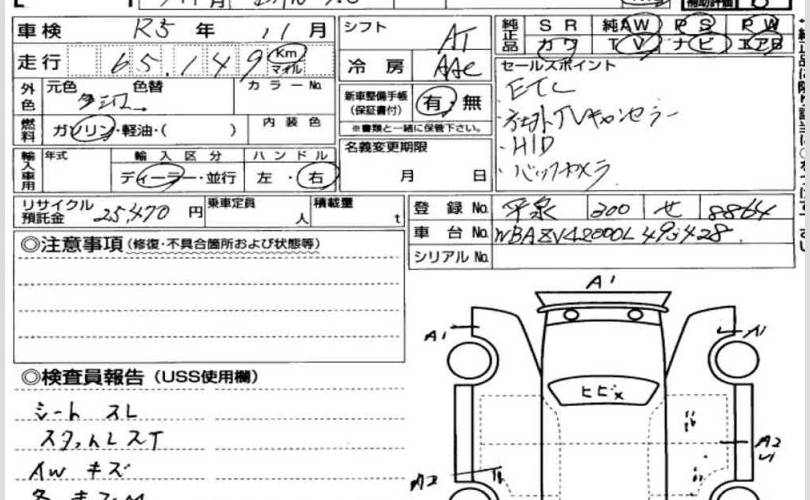 補助評価
車検 R5年 11月
シフト AT
純正品 SR 純AW PS PW
カワ TV ナビ エアB
走行 65,149 Km マイル
冷房 AAC
セールスポイント
・ETC
・社外TVキャンセラー
・HID
・バックカメラ
外色 元色 色替 カラーNo.
新車整備手帳(保証書付) 有・無
※書類と一緒に保管下さい。
燃料 ガソリン・軽油・( ) 内装色
名義変更期限
月 日
輸入車用 年式 輸入区分 ハンドル
ディーラー・並行 左・右
リサイクル預託金 25,470円 乗車定員 人 積載量 t
登録No. 平泉 300 せ 8864
車台No.
シリアルNo.
◎注意事項(修復・不具合箇所および状態等)
A1
A1 A1
ヒビX
◎検査員報告(USS使用欄)
シート スレ
AW キズ
A2
A2